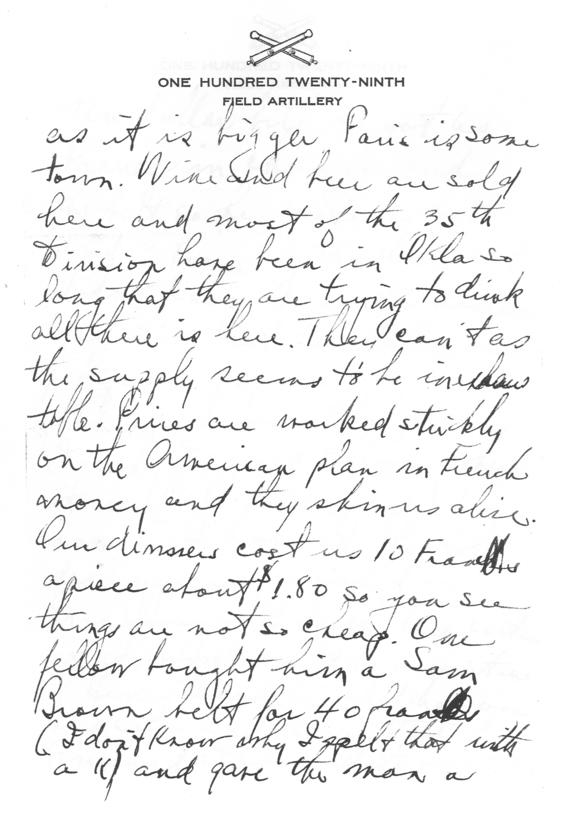 ONE HUNDRED TWENTY-NINTH
FIELD ARTILLERY
as it is bigger Paris is some
town. Wine and beer are sold
here and most of the 35th
Division have been in Okla so
long that they are trying to drink
all there is here. They can't as
the supply seems to be inexhaus
table. Prices are worked strickly
on the American plan in French
money and they skin us alive.
Our dinners cost us 10 Francs
apiece about $1.80 so you see
things are not so cheap. One
fellow bought him a Sam
Brown belt for 40 francs
(I don't know why I spelt that with
a K) and gave the man a